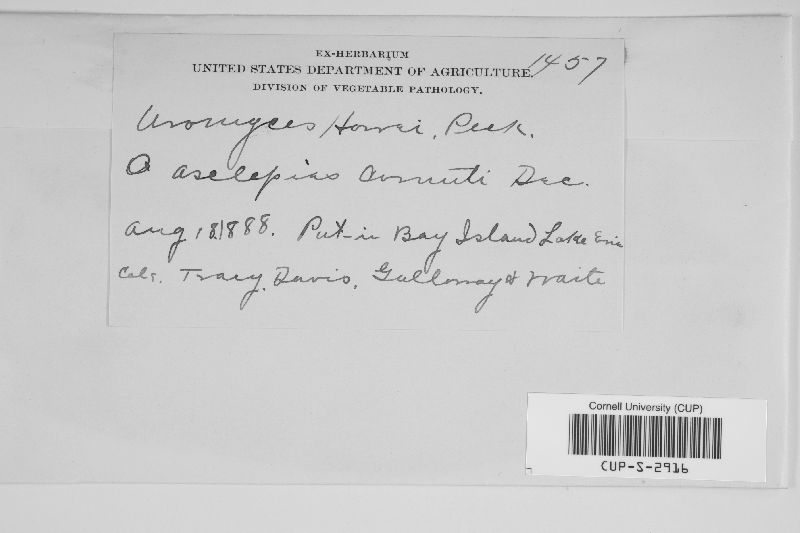 EX-HERBARIUM
UNITED STATES DEPARTMENT OF AGRICULTURE. 1457
DIVISION OF VEGETABLE PATHOLOGY.
Uromyces Howei, Peck.
O Asclepias Cornuti Dec.
Aug, 18, 1888. Put-in Bay Island Lake Erie
Cols. Tracy, Davis, Galloway & Waite
Cornell University (CUP)
CUP-S-2916